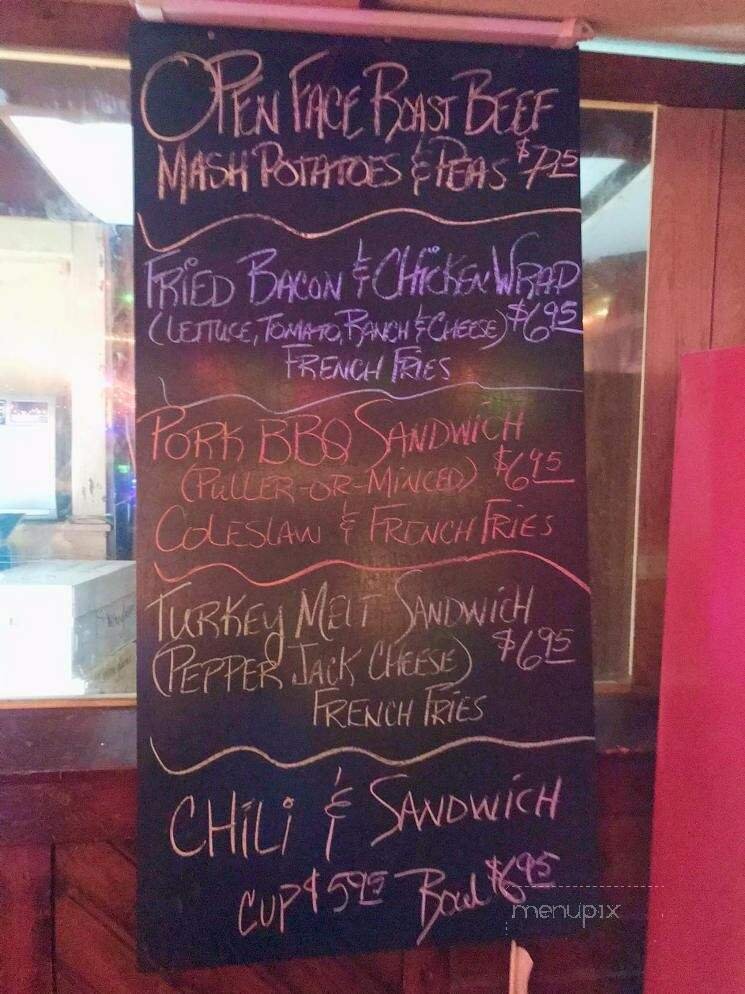 OPEN FACE ROAST BEEF
MASH POTATOES & PEAS $7.25
FRIED BACON & CHICKEN WRAP
(LETTUCE, TOMATO, RANCH & CHEESE) $6.95
FRENCH FRIES
PORK BBQ SANDWICH
(PULLER-OR-MINCED) $6.95
COLESLAW & FRENCH FRIES
TURKEY MELT SANDWICH
(PEPPER JACK CHEESE) $6.95
FRENCH FRIES
CHILI & SANDWICH
CUP $5.95 Bowl $6.95
menupix